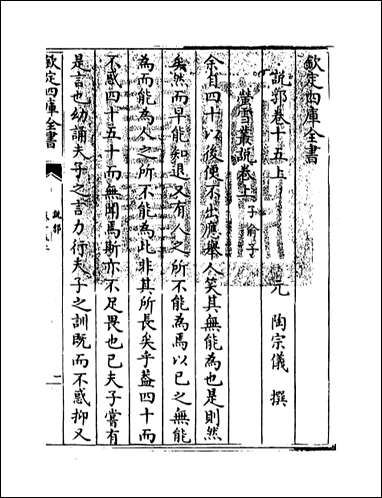 欽定四庫全書
說郛卷十五上
元　陶宗儀　撰
螢雪叢說卷上　子俞子
余自四十以後便不出應舉人笑其無能為也是則然
矣然而早能知退又有人之所不能為焉以己之無能
為而能為人之所不能為此非其所長矣乎蓋四十而
不惑四十五十而無聞焉斯亦不足畏也已夫子嘗有
是言也幼誦夫子之言力行夫子之訓既而不惑抑又
欽定四庫全書
說郛
一